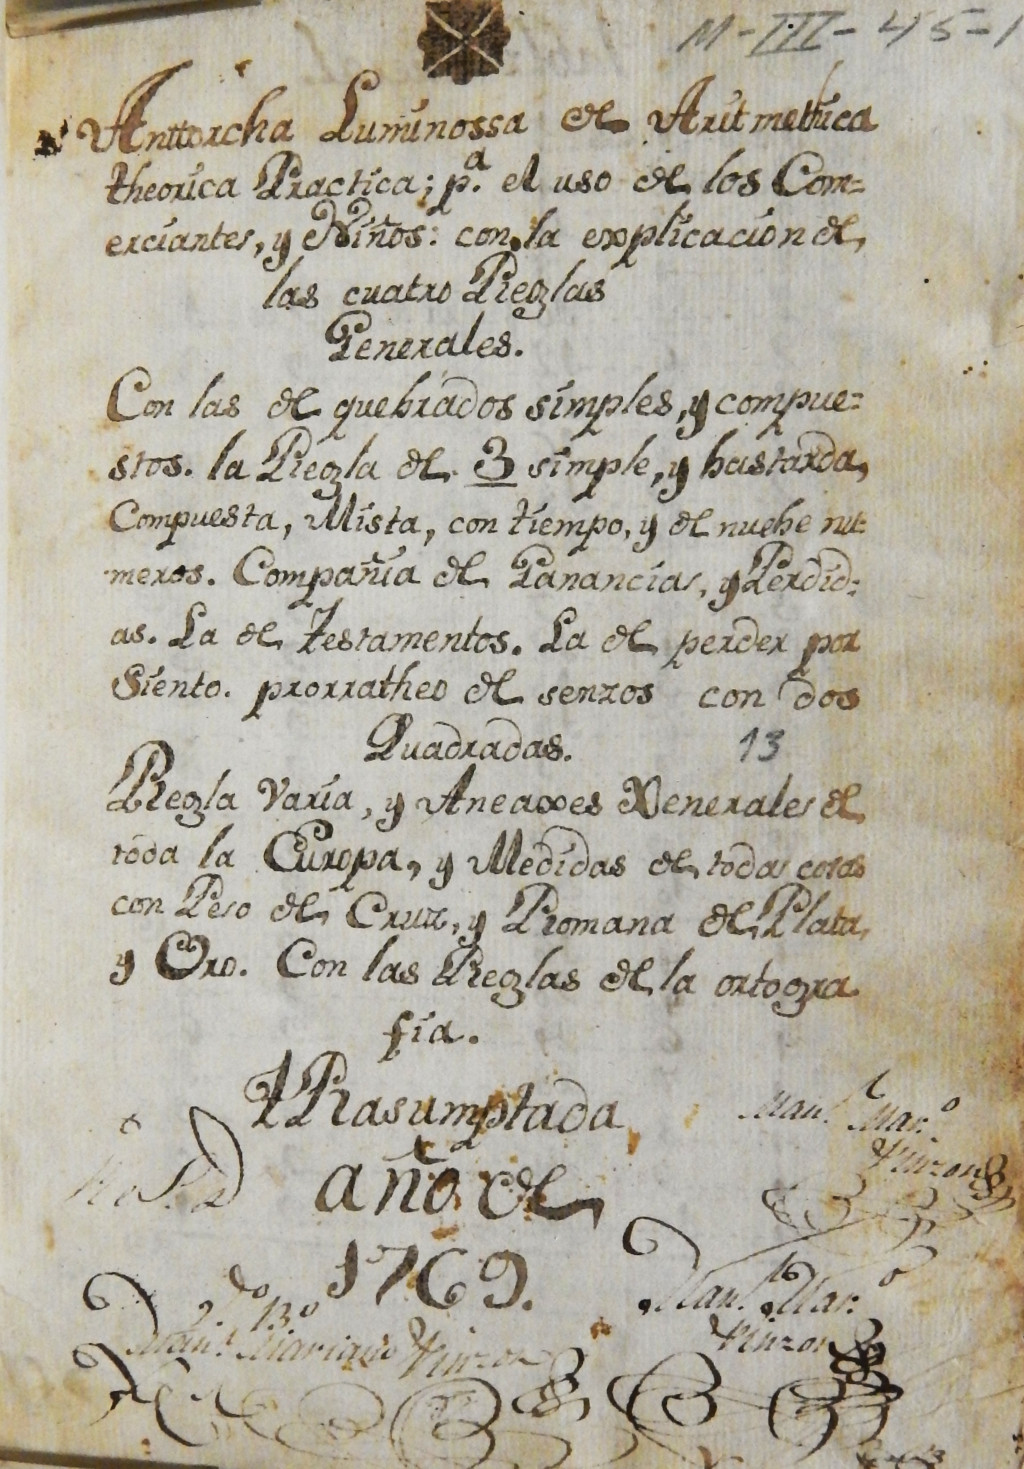 M-III-45-1
Anttorcha Luminossa de Aritmethica
theorica Practica; p.ª el uso de los Com=
erciantes, y Niños: con la explicacion de
las cuatro Reglas
Generales.
Con las de quebrados simples, y compue=
stos. la Regla de 3 simple, y bastarda,
Compuesta, Mista, con tiempo, y de nuebe nu=
meros. Compañia de Ganancias, y Perdid=
as. La de Testamentos. La de perder por
Siento. prorratheo de senzos con dos
Quadradas. 13
Regla Varia, y Aneaxes Xenerales de
toda la Europa, y Medidas de todas cosas
con Peso de Cruz, y Romana de Plata,
y Oro. Con las Reglas de la ortogra
fia.
Trasumptada
año de
1769.
Man.l Mar.º
Pinzon
Man.l Mar.º
Pinzon
Man.l Mariano Pinzon